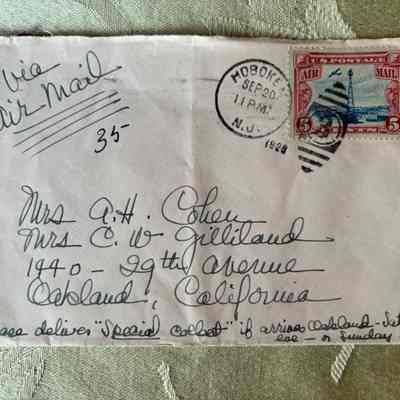 via
air Mail
35
HOBOKEN
SEP 20
11 PM
N.J.
1928
U.S. POSTAGE
AIR MAIL
5 CENTS 5
Mrs A.H. Cohen
Mrs C. W Gilliland
1440 - 29th avenue
Oakland, California
ease deliver "Special collect" if arrives Oakland - Sat
eve - or Sunday